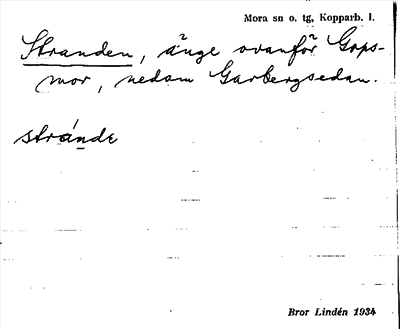 Mora sn o. tg, Kopparb. l.
Stranden, änge ovanför Gops-
mor, nedom Garbergsedan.
stránde
Bror Lindén 1934